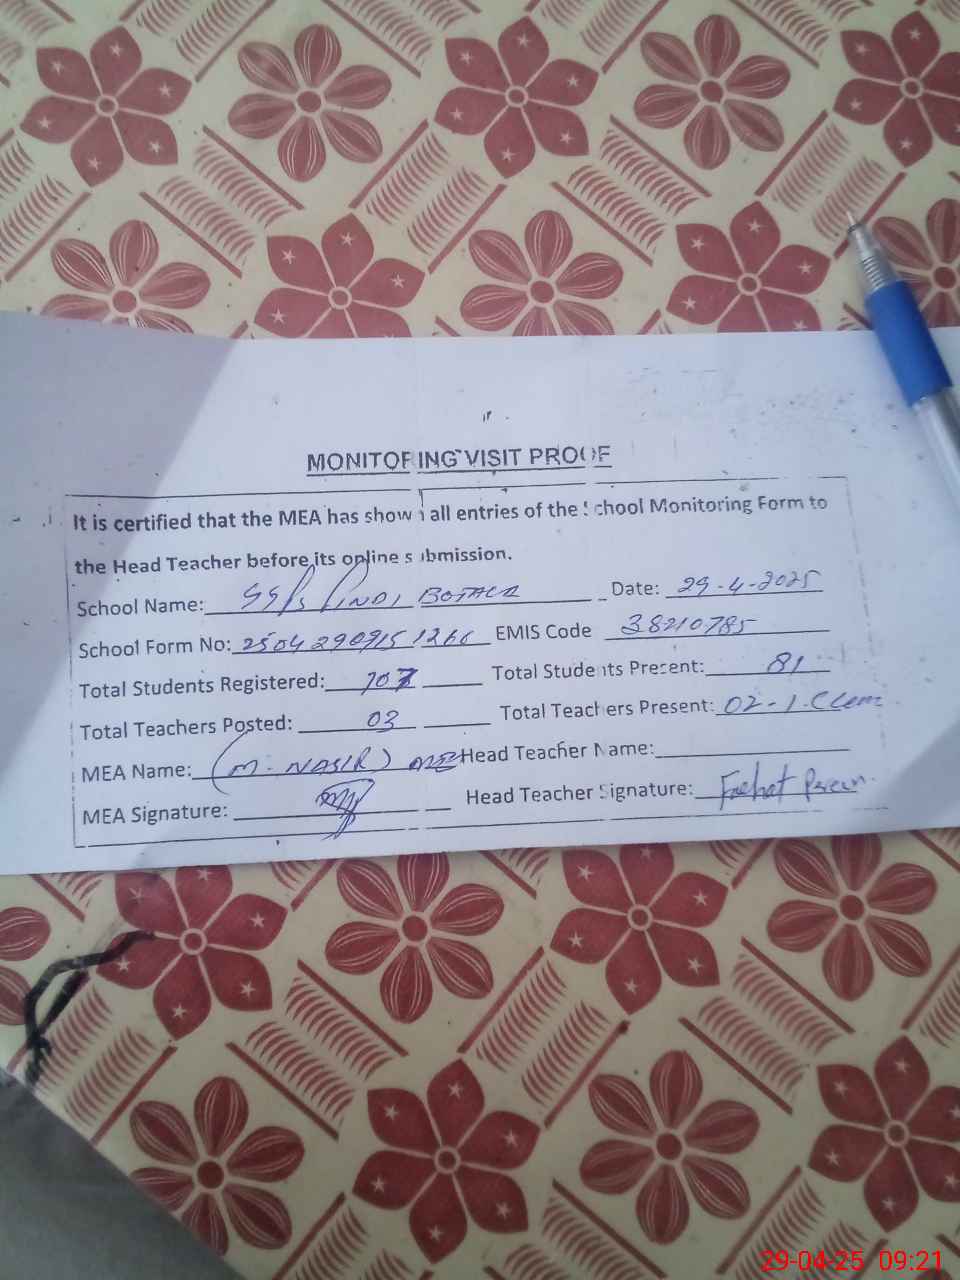 MONITORING VISIT PROOF
It is certified that the MEA has shown all entries of the School Monitoring Form to
the Head Teacher before its online submission.
School Name: GGPS PINDI BOTALA Date: 29-4-2025
School Form No: 25042909151266 EMIS Code 38210785
Total Students Registered: 107 Total Students Present: 81
Total Teachers Posted: 03 Total Teachers Present: 02-1.C
MEA Name: (M. NASIR) Head Teacher Name:
MEA Signature: Head Teacher Signature: Farhat
29-04-25 09:21